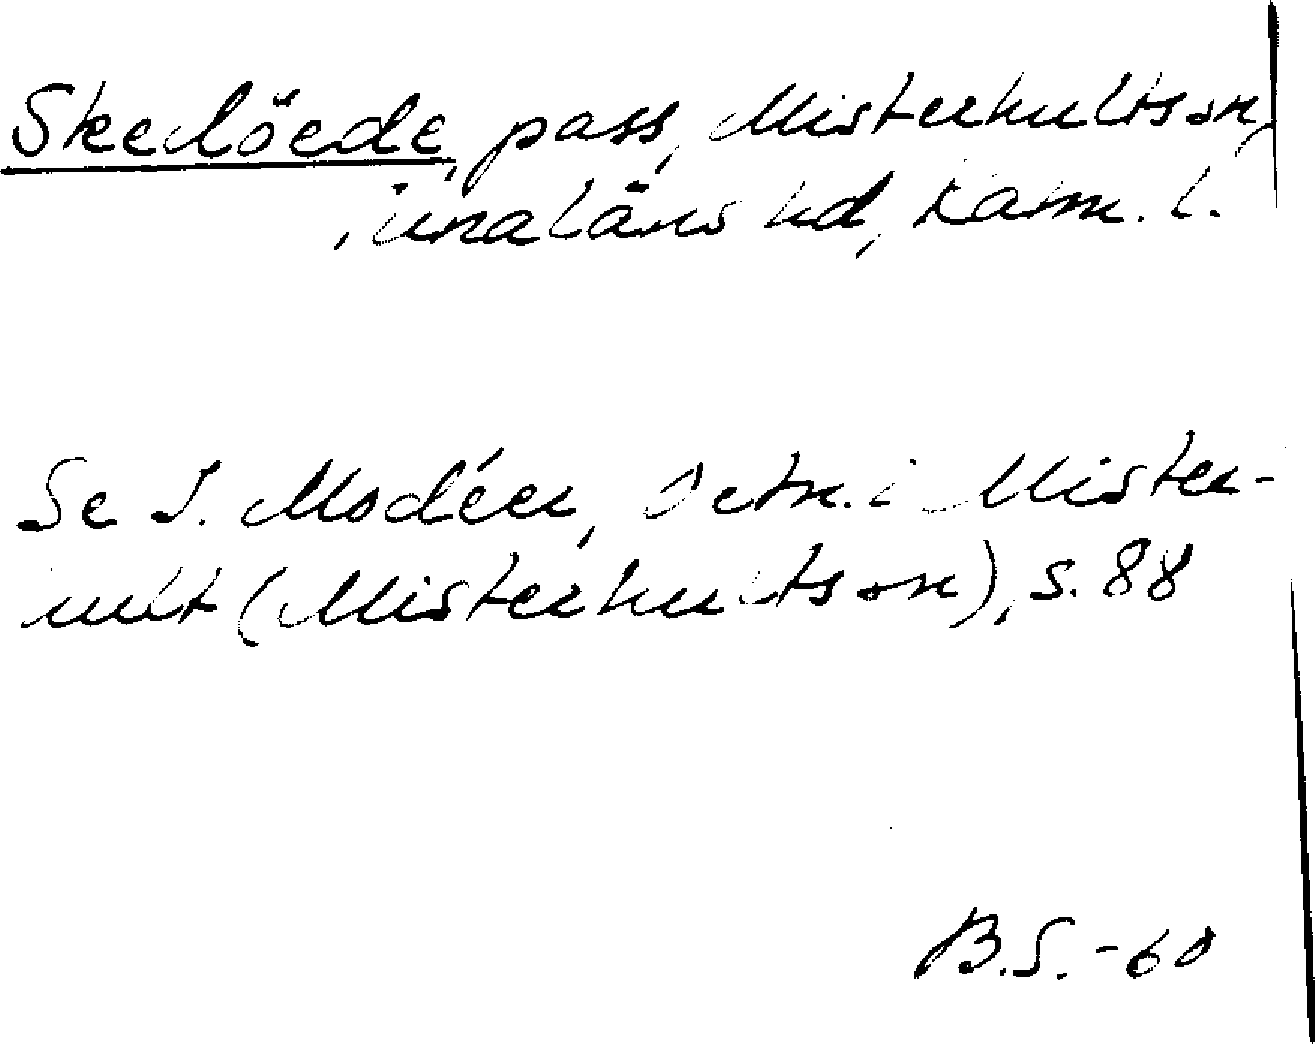 Skelöede, pass, Misterhults sn,
Tunaläns hd, Kalm. l.
Se I. Modéer, Ortn. i Mister-
hult (Misterhults sn), s. 88
B.S. -60